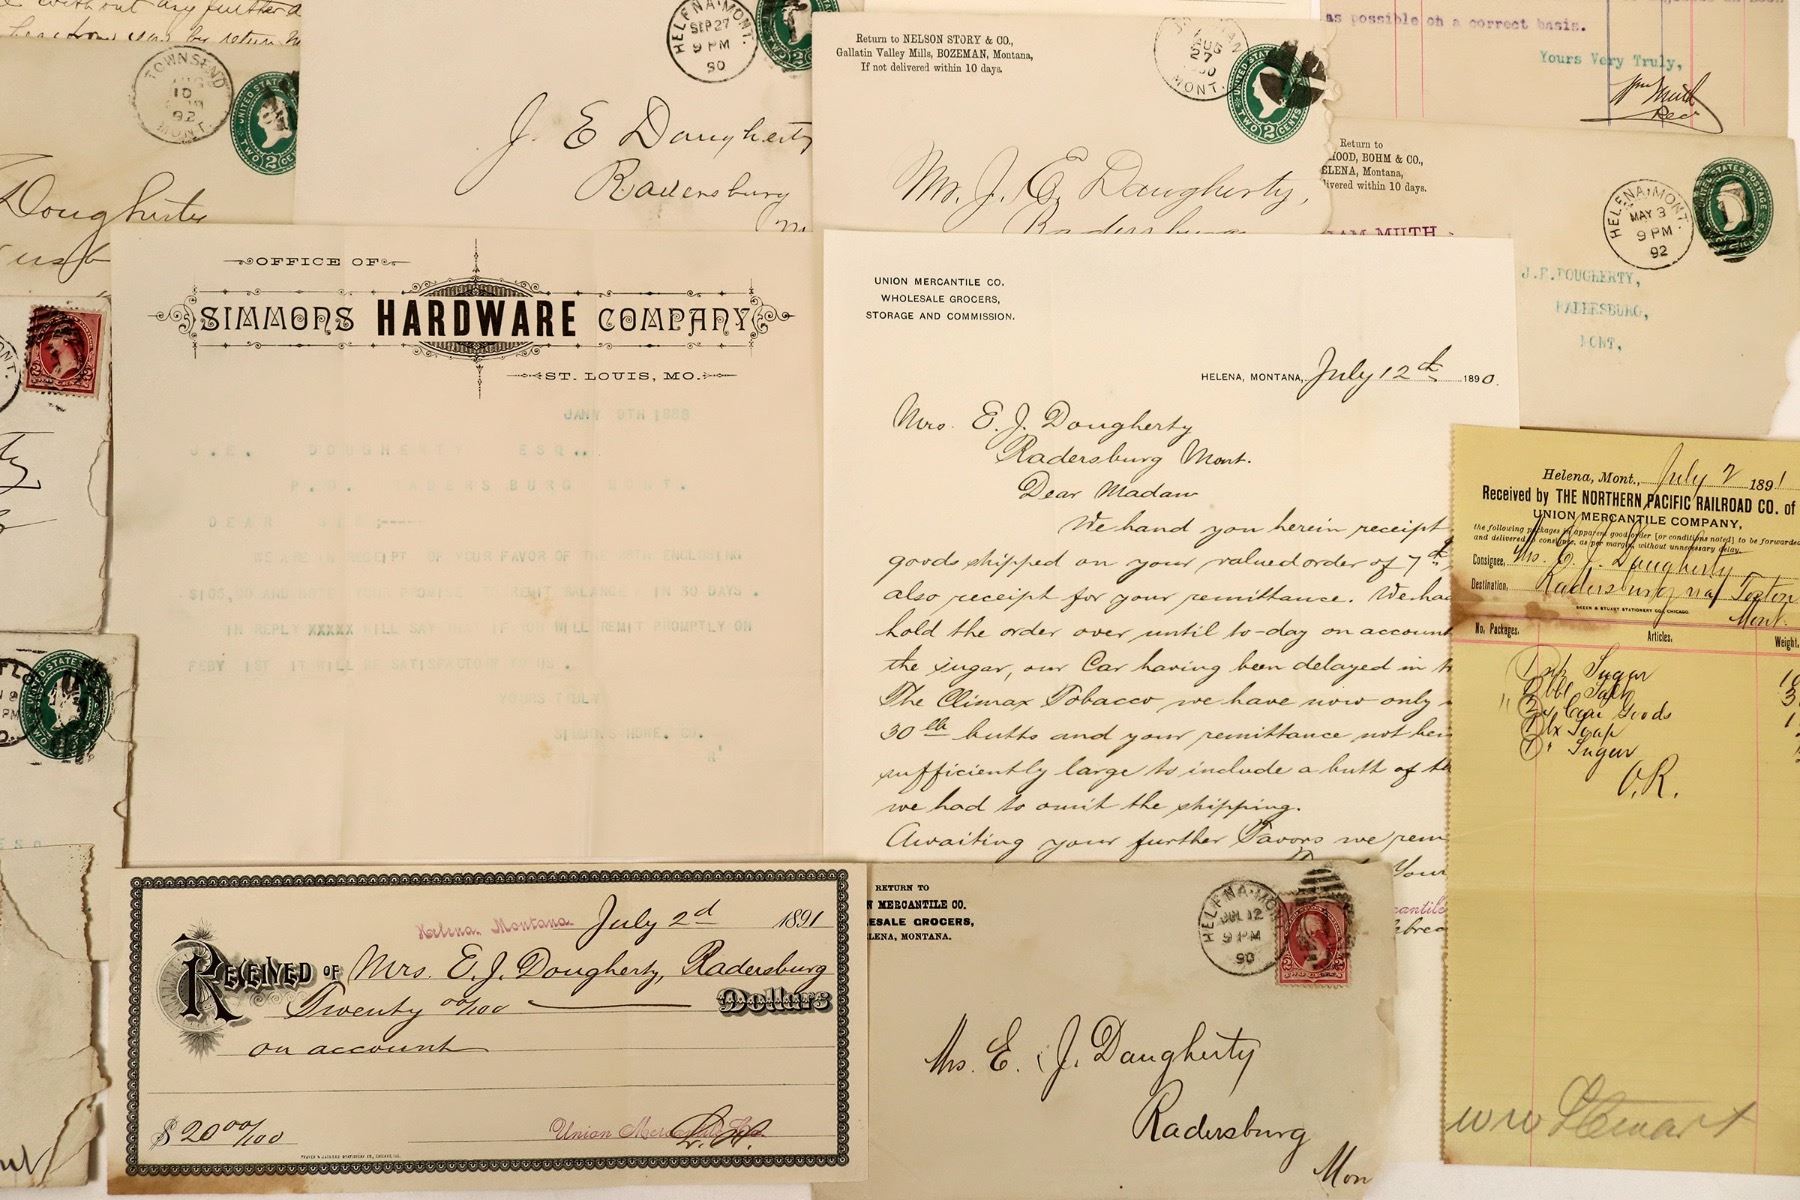 without any further
by return
TOWNSEND
10
92
MONT.
UNITED STATES
TWO 2 CENTS
Dougherty
HELENA, MONT.
SEP 27
9 PM
90
J. E Dougherty
Radersburg
Return to NELSON STORY & CO.,
Gallatin Valley Mills, BOZEMAN, Montana,
If not delivered within 10 days.
AUG
27
MONT.
UNITED STATES
TWO 2 CENTS
Mr. J. E. Dougherty,
Radersburg
as possible on a correct basis.
Yours Very Truly,
Wm Muth
Rec
Return to
HOOD, BOHM & CO.,
ELENA, Montana,
livered within 10 days.
SAM MUTH
HELENA, MONT.
MAY 3
9 PM
92
UNITED STATES POSTAGE
J.E.DOUGHERTY,
RADERSBURG,
MONT,
OFFICE OF
SIMMONS HARDWARE COMPANY
ST. LOUIS, MO.
JANY 9TH 1888
J.E. DOUGHERTY ESQ..
P.O. RADERSBURG MONT.
DEAR SIR;----
WE ARE IN RECEIPT OF YOUR FAVOR OF THE ENCLOSING
AND NOTE YOUR PROMISE TO REMIT BALANCE IN 30 DAYS.
IN REPLY XXXXX WILL SAY THAT IF YOU WILL REMIT PROMPTLY ON
FEBY 1ST IT WILL BE SATISFACTORY TO US.
YOURS TRULY
SIMMONS HDWE. CO.
UNION MERCANTILE CO.
WHOLESALE GROCERS,
STORAGE AND COMMISSION.
HELENA, MONTANA, July 12th 1890.
Mrs. E. J. Dougherty
Radersburg Mont.
Dear Madam
We hand you herein receipt
goods shipped on your valued order of 7th,
also receipt for your remittance. We had
hold the order over until to-day on account
the sugar, our Car having been delayed in
The Climax Tobacco we have now only
30 lb butts and your remittance not being
sufficiently large to include a butt of th
we had to omit the shipping.
Awaiting your further Favors we rem
Your
cantile
Helena, Mont., July 2 1891
Received by THE NORTHERN PACIFIC RAILROAD CO. of
UNION MERCANTILE COMPANY,
the following packages in apparent good order (or conditions noted) to be forwarded
and delivered to consignee, as per margin, without unnecessary delay.
Consignee, Mrs. E. J. Daugherty
Destination, Radersburg via Toston
Mont.
SKEEN & STUART STATIONERY CO., CHICAGO.
No. Packages. Articles. Weight.
1 Sugar
2 bbl Salt
2 cs Can Goods
1 Bx Soap
1 " Sugar
O.R.
W W Stewart
Helena, Montana. July 2d 1891
RECEIVED OF Mrs. E. J. Dougherty, Radersburg
Twenty 00/100 Dollars
on account
$ 20 00/100
Union Mercantile Co.
RETURN TO
N MERCANTILE CO.
ESALE GROCERS,
LENA, MONTANA.
HELENA, MONT
JUL 12
9 PM
90
Mrs. E. J. Daugherty
Radersburg
Mon